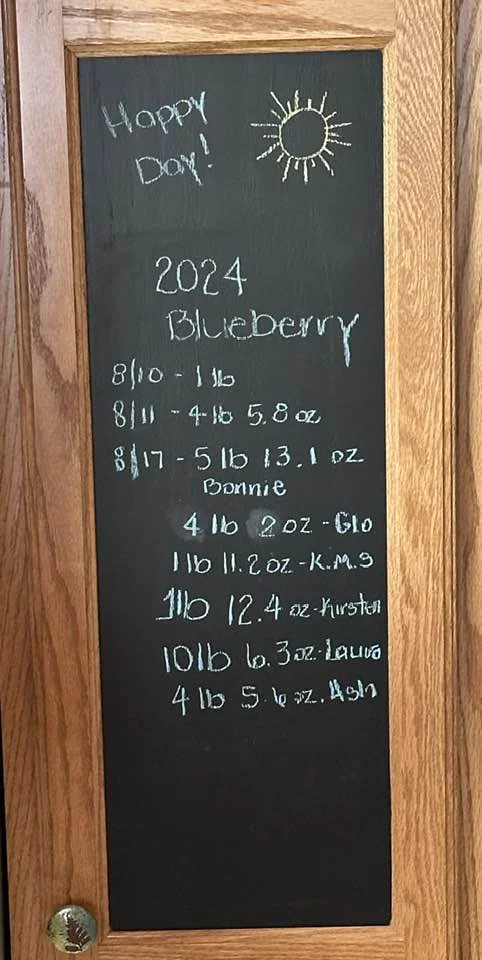 Happy
Day!
2024
Blueberry
8/10 - 1 lb
8/11 - 4 lb 5.8 oz
8/17 - 5 lb 13.1 oz
Bonnie
4 lb 2 oz - Glo
1 lb 11.2 oz - K.M.S
1 lb 12.4 oz - Kirsten
10 lb 6.3 oz - Laura
4 lb 5.6 oz. Ash